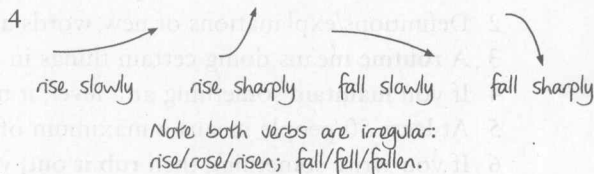 4
rise slowly rise sharply fall slowly fall sharply
Note both verbs are irregular:
rise/rose/risen; fall/fell/fallen.